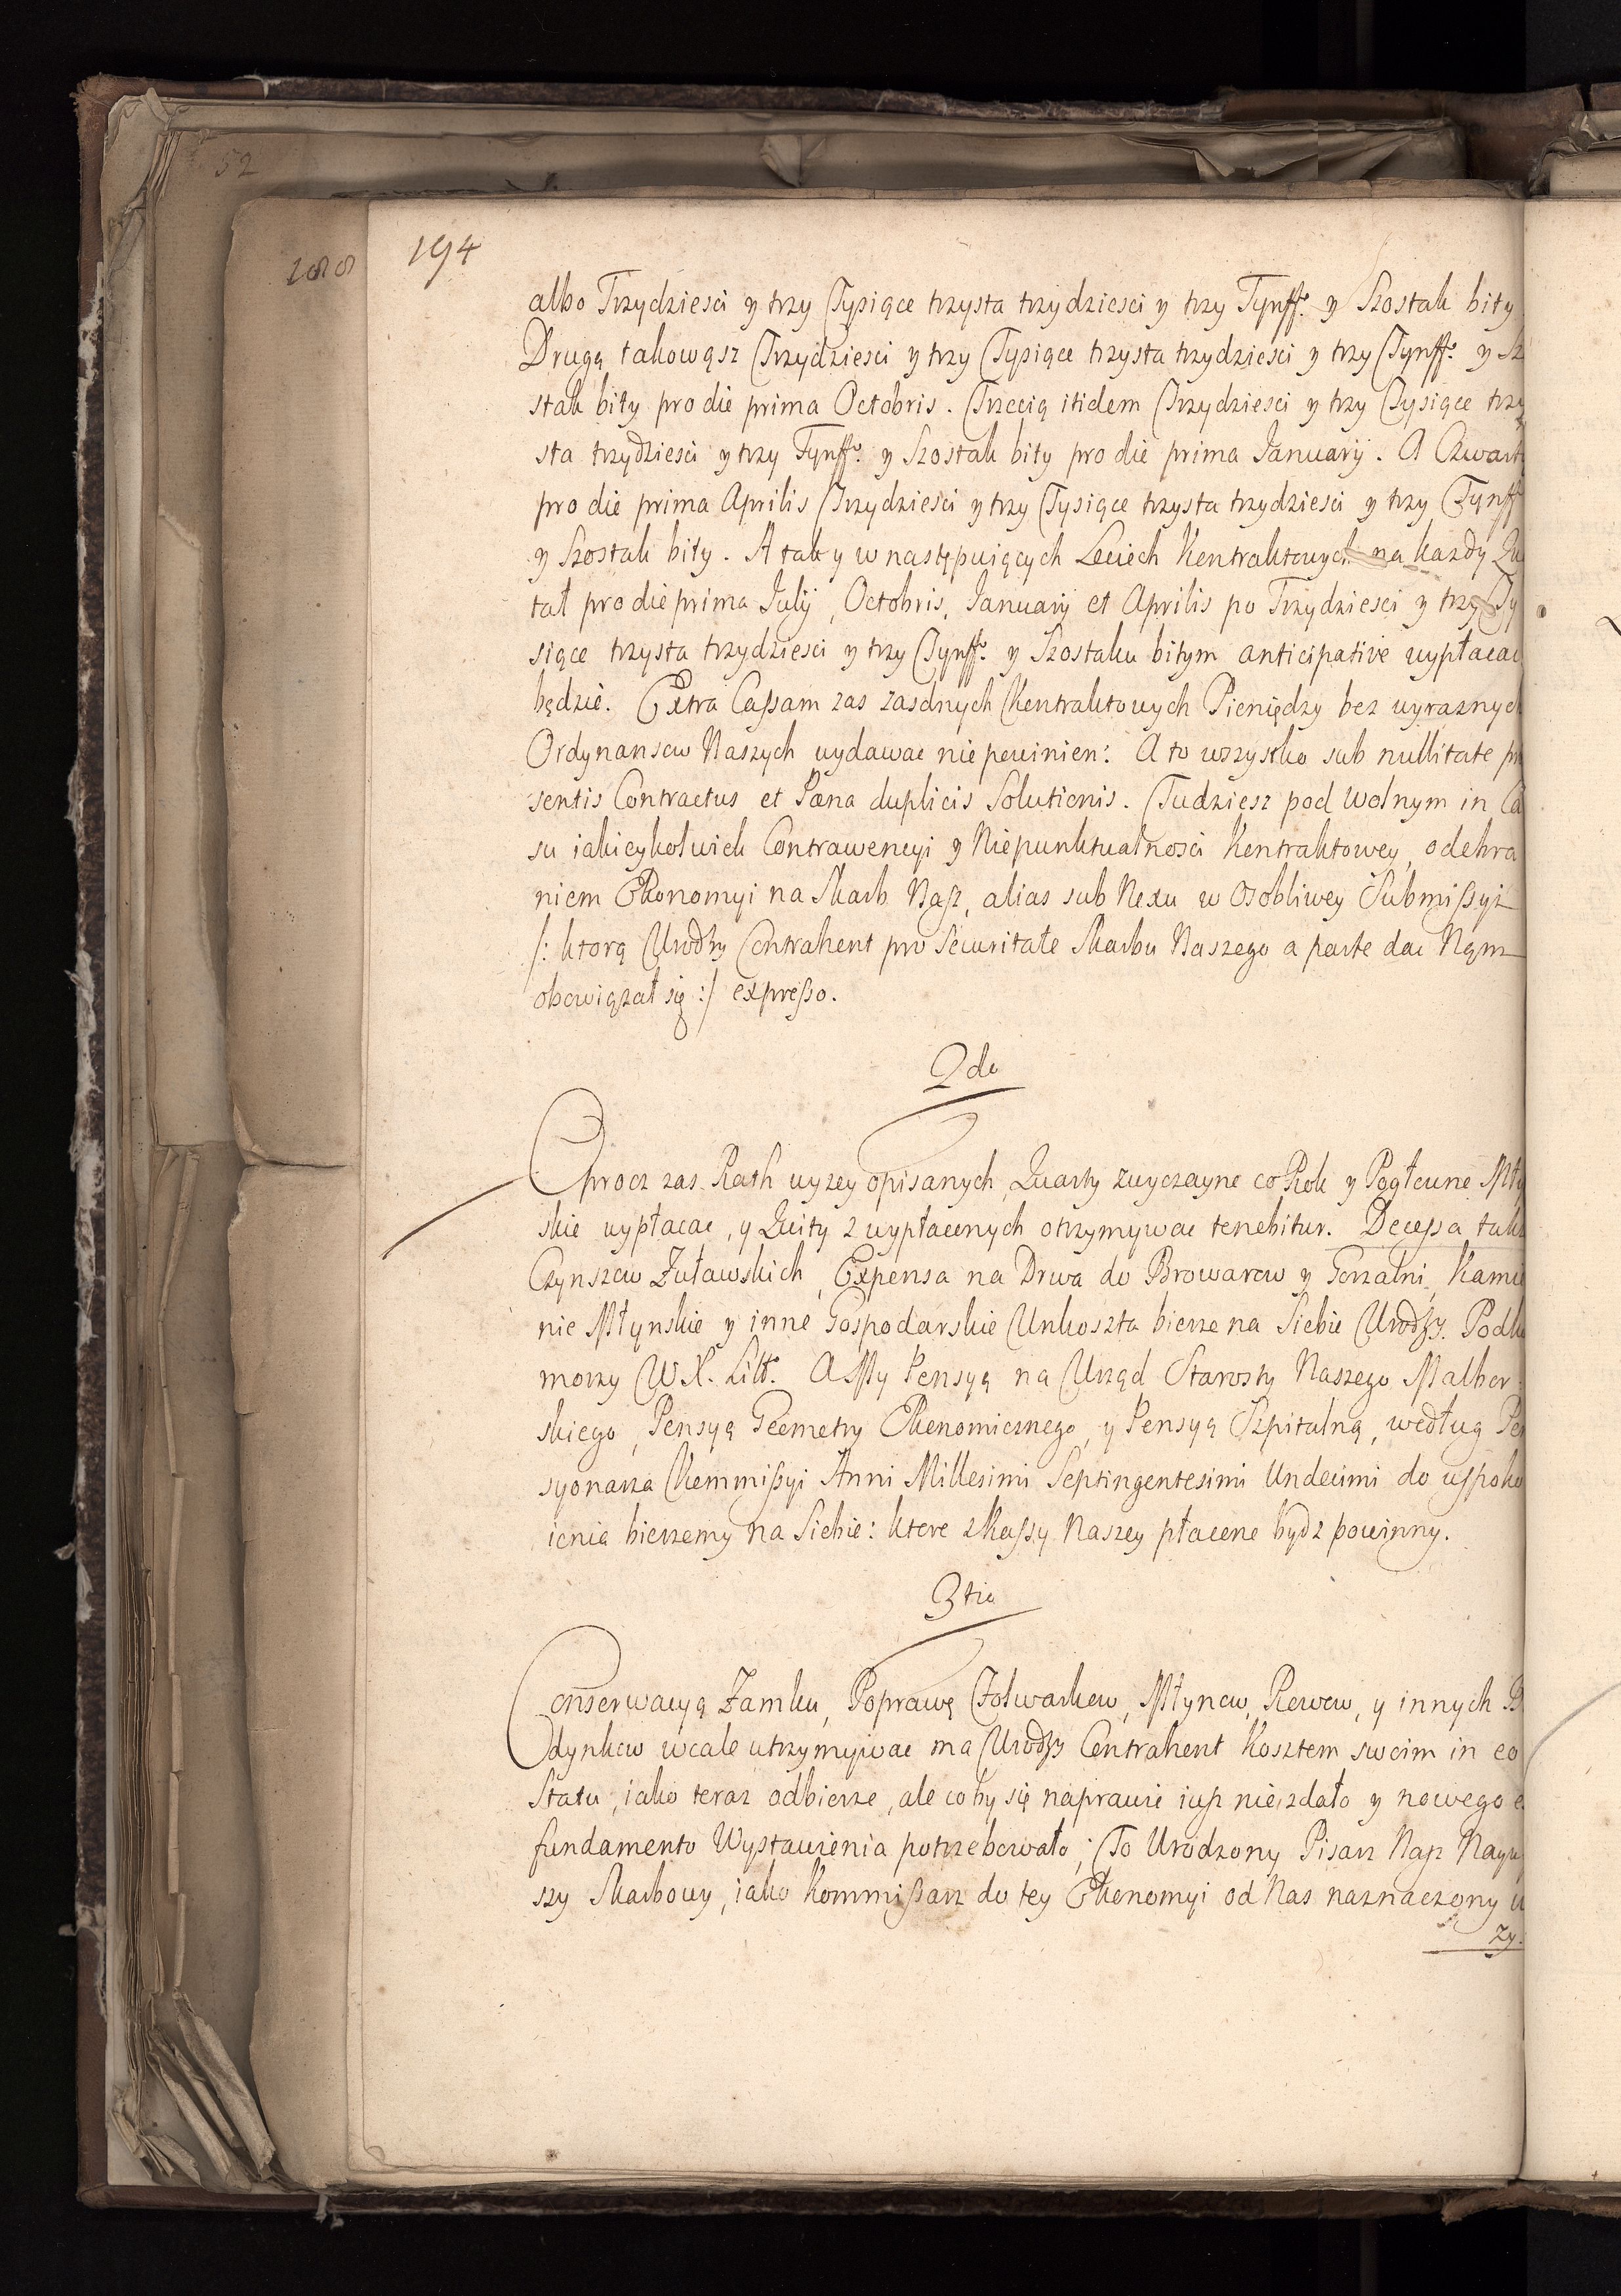 52
288
194
albo Trzydziesci y trzy Tysiące trzysta trzydziesci y trzy Tynff. y Szostak bity
Drugą takowąsz Trzydziesci y trzy Tysiące trzysta trzydziesci y trzy Tynff. y Sz
stak bity pro die prima Octobris. Trzecią itidem Trzydziesci y trzy Tysiące trzy
sta trzydziesci y trzy Tynff. y Szostak bity pro die prima Januarÿ. A Czwart
pro die prima Aprilis Trzydziesci y trzy Tysiące trzysta trzydziesci y trzy Tynff
y Szostak bity. A tak y w następuiących Leciech Kontraktowych na kazdy Qu
tał pro die prima Julÿ, Octobris, Januarÿ et Aprilis po Trzydziesci y trzy Ty
siące trzysta trzydziesci y trzy Tynff. y Szostaku bitym anticipative wypłacac
będzie. Extra Cassam zas zasdnych Kontraktowych Pieniędzy bez wyraznych
Ordynansow Naszych wydawac nie powinien: A to wszystko sub nullitate præ
sentis Contractus et Pœna duplicis Solutionis. Tudziesz pod Wolnym in Ca
su iakieykolwiek Contrawencyi y Niepunktualnosci Kontraktowey, odebra
niem Ekonomyi na Skarb Nasz, alias sub Nexu w Osobliwey Submissyi
/: ktorą Urodzy Contrahent pro Securitate Skarbu Naszego a parte dac Nąm
obowiązał się :/ expresso.
2do
Oprocz zas Rath wyzey opisanych, Quarty zwyczayne co Rok y Pogłowne Mły
skie wypłacac, y Quity z wypłaconych otrzymywac tenebitur. Decessa takz
Czynszow Zuławskich, Expensa na Drwa do Browarow y Gorzalni, Kamie
nie Młynskie y inne Gospodarskie Unkoszta bierze na Siebie Urodzy. Podko
morzy W.X. Litt. A My Pensyą na Urząd Starosty Naszego Malbor
skiego, Pensyą Geometry Ekonomicznego, y Pensyą Szpitalną, według Pen
syonarza Kommissyi Anni Millesimi Septingentesimi Undecimi do uspoko
ienia bierzemy na Siebie: ktore z Kassy Naszey płacone bydz powinny.
3tio
Conserwacyą Zamku, Poprawę Folwarkow, Młynow, Rowow, y innych B
dynkow wcale utrzymywac ma Urodzy Contrahent Kosztem swoim in eo
Statu, iako teraz odbierze, ale co by się naprawic iusz nie zdało y nowego e
fundamento Wystawienia potrzebowało; To Urodzony Pisarz Nasz Nayw
szy Skarbowy, iako Kommissarz do tey Ekonomyi od Nas naznaczony u
zy.